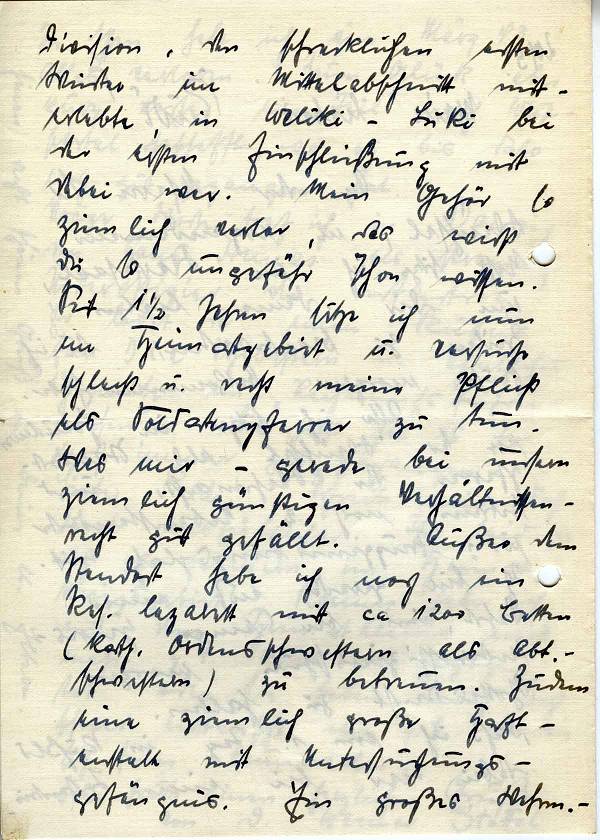 Division, den schrecklichen ersten
Winter im Mittelabschnitt mit-
erlebte, in Weliki-Luki bei
der ersten Einschließung mit
dabei war. Mein Gehör so
ziemlich verlor, das wirst
Du so ungefähr schon wissen.
Seit 1½ Jahren sitze ich nun
im Heimatgebiet u. versuche
schlecht u. recht meine Pflicht
als Soldatenpfarrer zu tun.
Was mir - gerade bei unsern
ziemlich günstigen Verhältnissen -
recht gut gefällt. Außer dem
Standort habe ich noch ein
Res. lazarett mit ca 1200 Betten
(Kath. Ordensschwestern als Abt.-
schwestern) zu betreuen. Zudem
eine ziemlich große Haft-
anstalt mit Untersuchungs-
gefängnis. Ein großes Wehrm.-